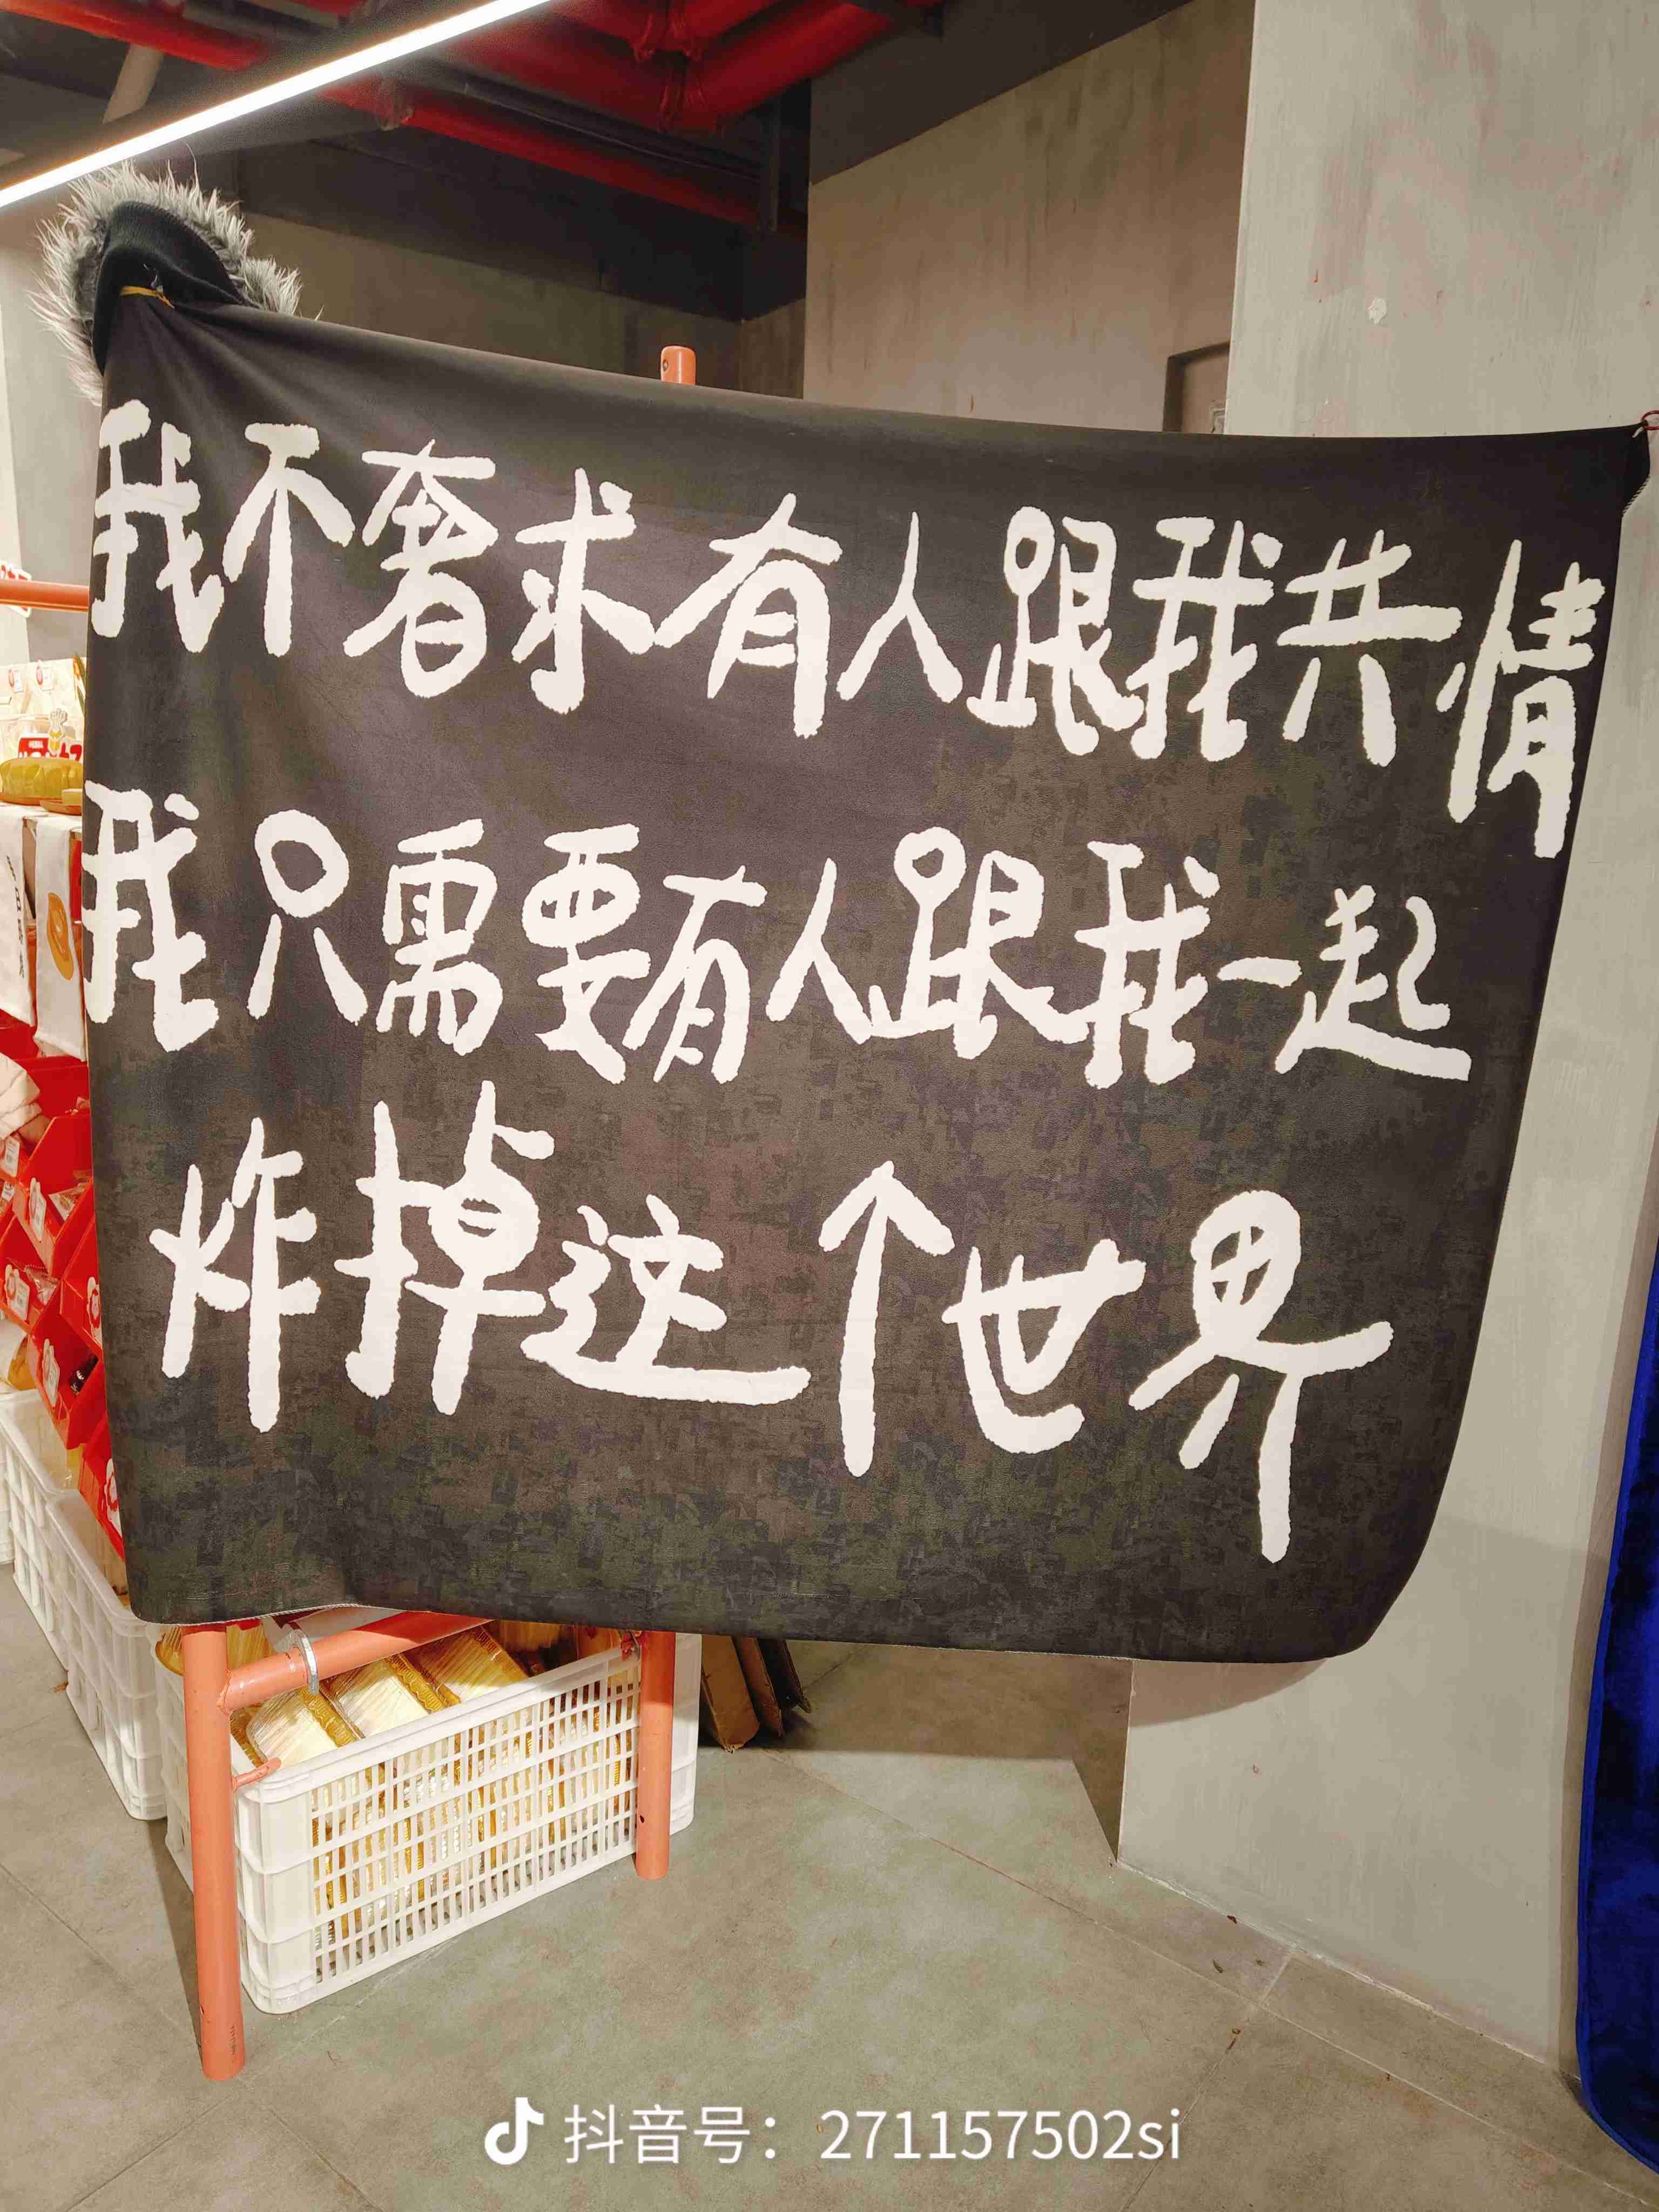 我不奢求有人跟我共情
我只需要有人跟我一起
炸掉这个世界
抖音号：271157502si